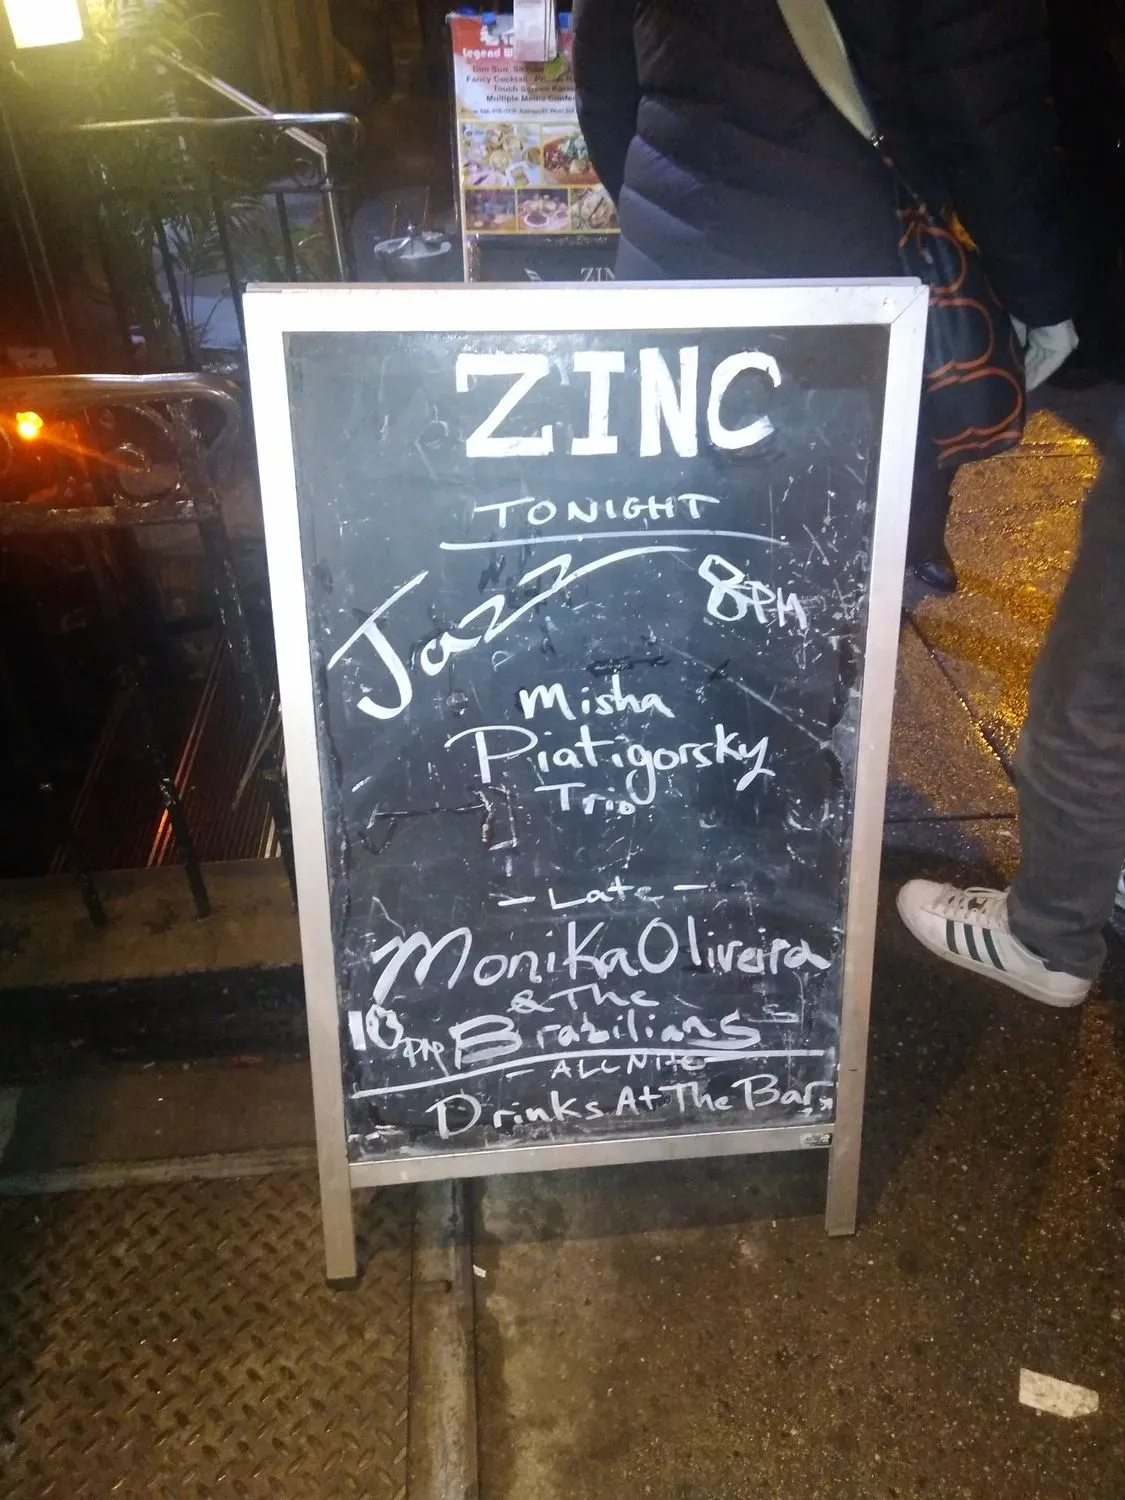 Legend
Dim Sum
Fancy Cocktail
Touch Screen
Multiple Media
ZIN
ZINC
TONIGHT
Jazz 8PM
Misha
Piatigorsky
Trio
- Late -
Monika Oliveira
& The
10PM Brazilians
- ALL Nite -
Drinks At The Bar